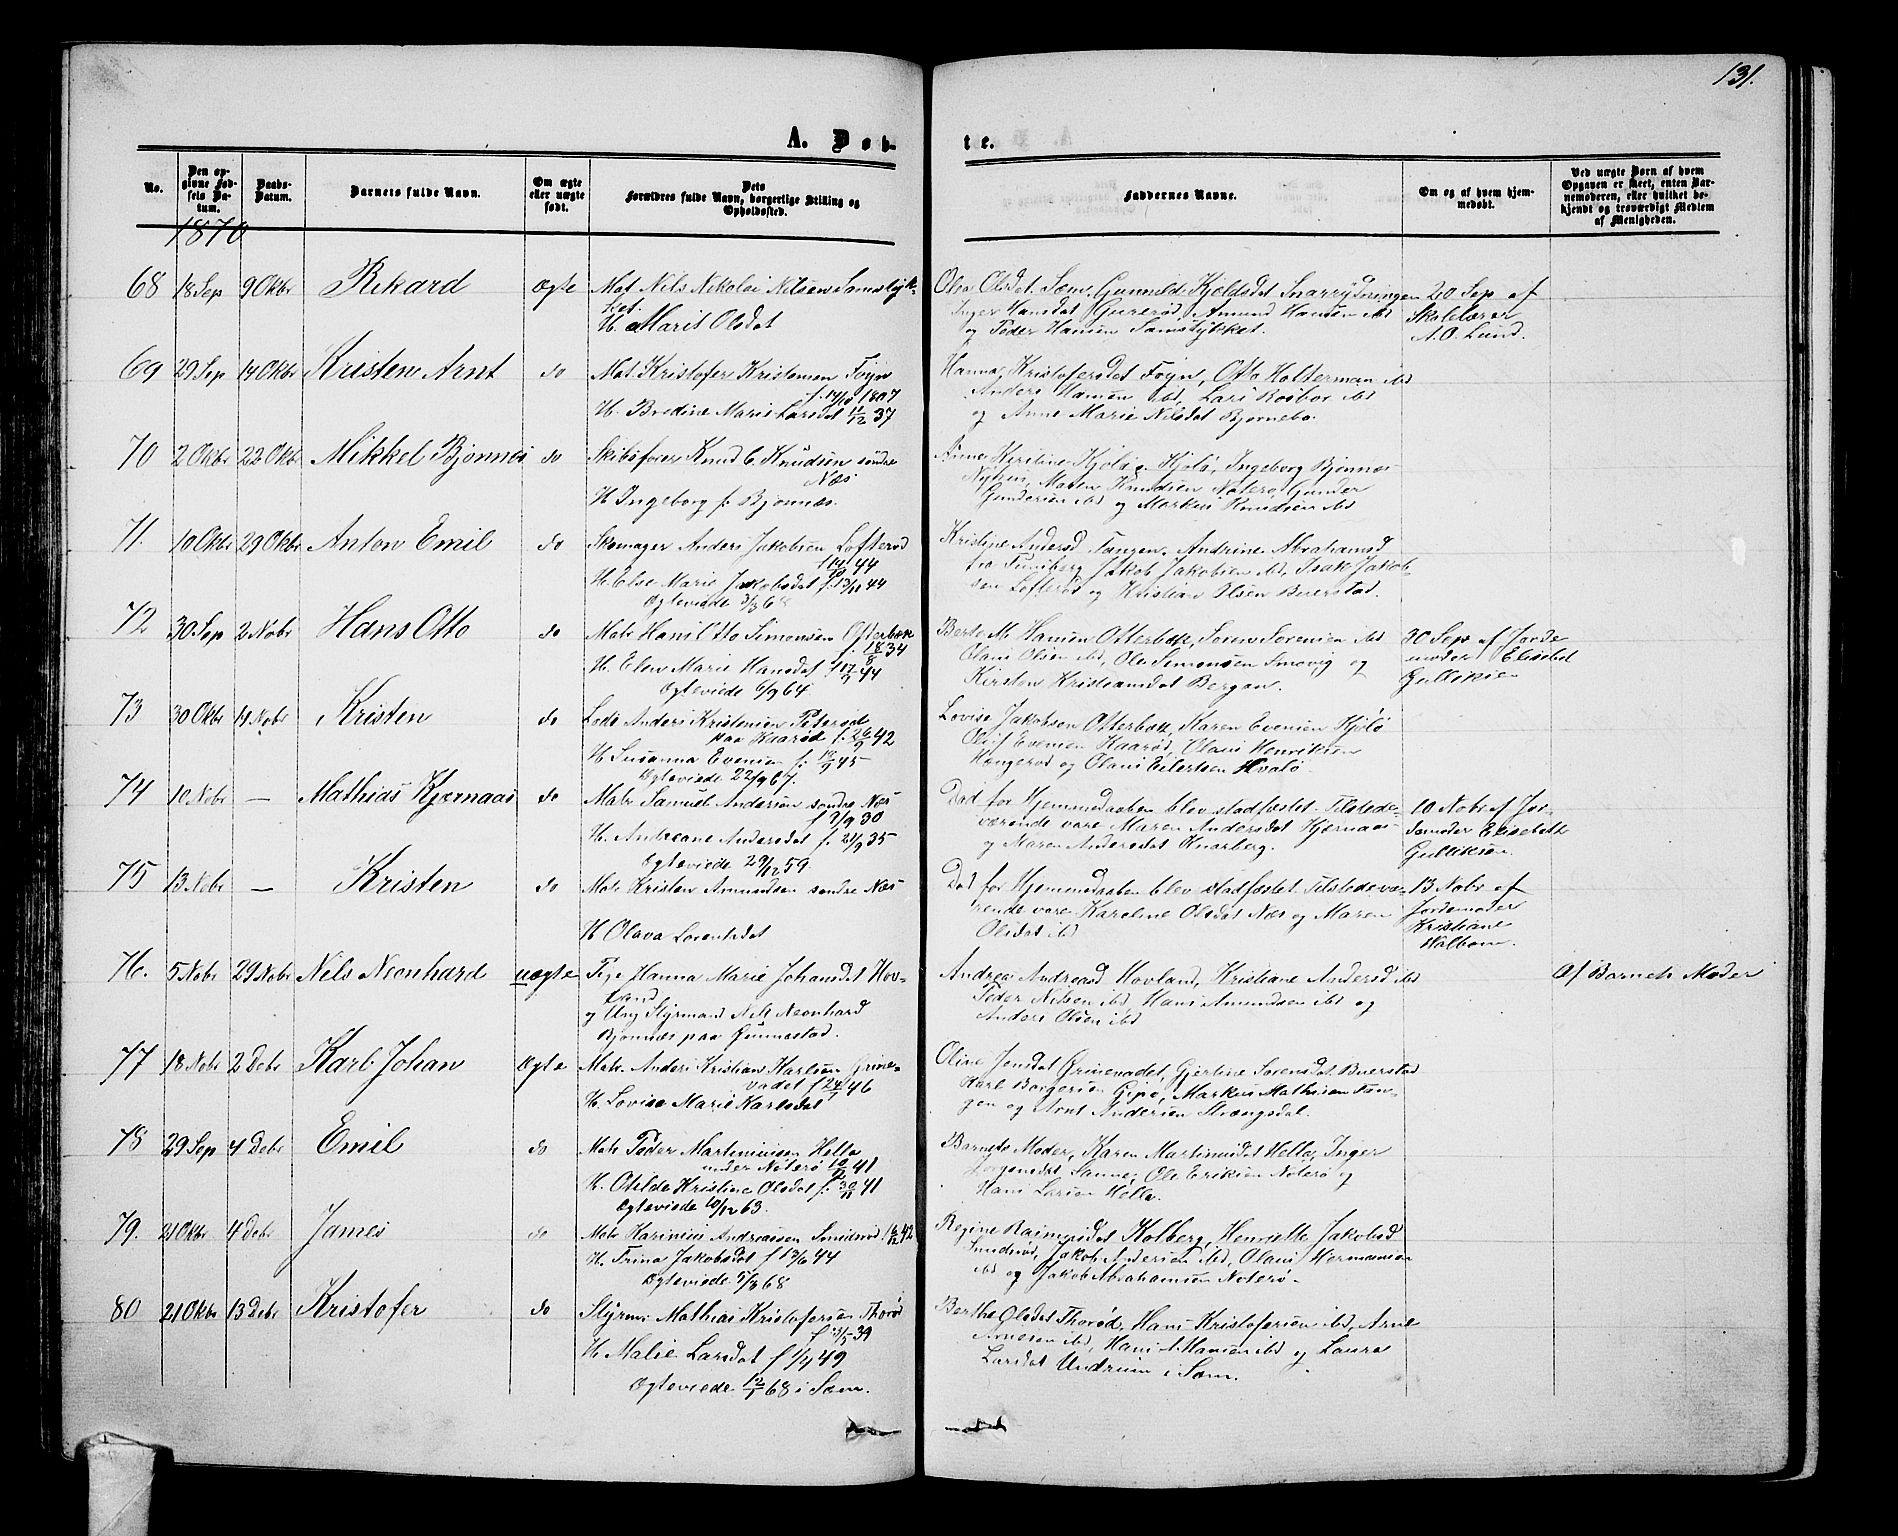 131.
A. Døb-
te.
No.
Den op-
givne Fød-
sels Da-
tum.
Daabs-
Datum.
Barnets fulde Navn.
Om ægte
eller uægte
født.
Dets
Forældres fulde Navn, borgerlige Stilling og
Opholdssted.
Faddernes Navne.
Om og af hvem hjem-
medøbt.
Ved uægte Børn af hvem
Opgaven er skeet, enten Bar-
nemoderen, eller hvilket be-
kjendt og troværdigt Medlem
af Menigheden.
1870
68 18 Sep 9 Oktbr Rikard Ægte Mat Nils Nikolai Nilsen Semstyk-
ket.
H. Marit Olsdat
Olea Olsdat. Sæm, Gunnild Kjeldsdat Snarrydningen
Inger Hansdat Gurerød, Amund Hansen ibd
og Peder Hansen Semstykket.
20 Sep af
Skolelærer
A.O. Lund.
69 29 Sep 14 Oktbr Kristen Arnt do Mat. Kristofer Kristensen Foyn
f. 14/10 1807
H. Bredine Marie Larsdat 11/12 37
Hanna Kristofersdat Foyn, Otto Holterman ibd
Anders Hansen ibd, Lars Rosbor ibd
og Anne Marie Nilsdat Bjørnebo.
70 2 Oktbr 22 Oktbr Mikkel Bjønnes do Skibsfører Knud C. Knudsen søndre
Næs
H. Ingeborg f. Bjønnæs.
Anne Kirstine Kjølø, Ingeborg Bjønnæs
Maren Knudsen Nøterø, Gunder
Gundersen ibd og Markus Knudsen ibd
71. 10 Oktbr 29 Oktbr Anton Emil do Skomager Anders Jakobsen Lofterød
f 14/10 44
H. Else Marie Jakobsdat f. 13/11 44
Ægteviede 3/3 68
Kristine Andersd Tangen, Andrine Abrahamsd
fra Tunsberg Jakob Jakobsen ibd, Isak Jakob-
sen Lofterød og Kristian Olsen Buerstad.
72 30 Sep 2 Nobr Hans Otto do Matr Hans Otto Simonsen Otterbæk
f. 18/8 34
H. Elen Marie Hansdat f 17/9 44
Ægteviede 6/9 64
Berte M. Hansen Otterbæk, Søren Sørensen ibd
Olaus Olsen ibd, Ole Simonsen Smovig og
Kirsten Kristiansdat Bergan.
30 Sep af Jorde
moder Elisebet
Gulliksen
73 30 Oktbr 14 Nobr Kristen do Lods Anders Kristensen Peterød
paa Haarød f. 26/9 42
H. Susanna Evensen f. 18/9 45
Ægteviede 22/9 67.
Lovise Jakobsen Otterbæk, Karen Evensen Kjølø
Oluf Evensen Haarød, Olaus Henriksen
Hængerød og Olaus Eilertsen Hvalø
74 10 Nobr — Mathias Kjærnaas do Matr Samuel Andersen søndre Næs
f 2/9 30
H. Andreane Andersdat f. 21/9 35
Ægteviede 29/12 59
Død før Hjemmedaaben blev stadfæstet. Tilstede-
værende vare Maren Andersdat Kjærnaas
og Maren Andersdat Knarberg.
10 Nobr af Jor-
demoder Elisebeth
Gulliksen.
75 13 Nobr — Kristen do Matr Kristen Amundsen søndre Næs
H. Olava Lorentsdat
Død før Hjemmedaaben blev stadfæstet. Tilstedevæ-
rende vare Karoline Olsdat Næs og Maren
Olsdat ibd
13 Nobr af
Jordemoder
Kristiane
Halborn.
76. 5 Nobr 29 Nobr Nils Neonhard uægte Pige Hanna Marie Johansdat Hov-
land
og Ung Styrmand Nils Neonhard
Bjønnæs paa Gunnestad.
Andrea Andreasd Hovland, Kristiane Andersd ibd
Peder Nilsen ibd Hans Amundsen ibd og
Anders Olsen ibd
Af Barnets Moder
77 18 Nobr 2 Debr Karl Johan Ægte Matr. Anders Kristian Karlsen Grime-
vadet f 24/7 46
H. Lovise Marie Karlsdat
Oline Jensdat Grimevadet, Gjertine Sørensdat Buerstad
Karl Borgersen Gipø, Markus Mathisen Tan-
gen og Arnt Andersen Strængsdal.
78 29 Sep 4 Debr Emil do Matr Peder Martiniusen Hella
under Nøterø 10/2 41
H. Otilde Kristine Olsdat f. 30/11 41
Ægteviede 10/12 63.
Barnets Moder, Karen Martinusdat Hella, Inger
Jørgensdat Sanne, Ole Eriksen Nøterø og
Hans Larsen Hella.
79. 21 Oktbr 4 Debr James do Matr Karinius Andreassen Smidsrød 18/12 42
H. Trina Jakobsdat f 13/6 44
Ægteviede 5/3 68
Regine Rasmusdat Kolberg, Henriette Jakobsd
Smidsrød, Jakob Andersen ibd, Olaus Hermansen
ibd og Jakob Abrahamsen Nøterø.
80 21 Oktbr 13 Debr Kristofer do Styrm. Mathias Kristofersen Thorød
f 13/5 39
H. Malie Larsdat f 1/4 49
Ægteviede 12/1 68 i Sæm.
Berthe Olsdat Thorød, Hans Kristofersen ibd, Arne
Arnesen ibd, Hans A. Hansen ibd og Laura
Larsdat Undrum i Sæm.